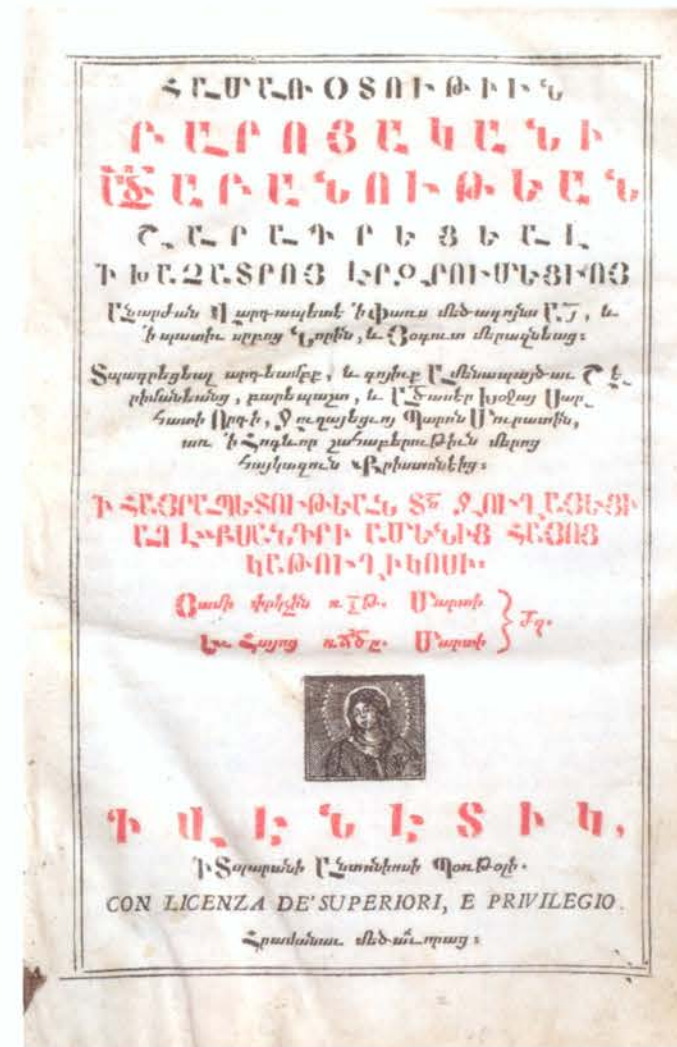 ՀԱՄԱՌՕՏՈՒԹԻՒՆ
ԲԱՐՈՅԱԿԱՆԻ
ԱԾԱԲԱՆՈՒԹԵԱՆ
ՇԱՐԱԴՐԵՑԵԱԼ
Ի ԽԱՉԱՏՐՈՅ ԷՐԶՐՈՒՄԵՑԻՈՅ
Անարժան Վարդապետէ ՚ի փառս մեծագոյնս ԱՅ, և
՚ի պատիւ սրբոյ Նորին, և Յօգուտ մերազնեաց։
Տպագրեցեալ արդեամբք, և գոյիւք Ամենապայծառ Շէ֊
րիմանեանց, բարեպաշտ, և ԱԾասէր խօջայ Սար֊
հատի Որդի, Ջուղայեցւոյ Պարոն Մուրատին,
առ ՚ի Հոգևոր շահաբերութիւն մերոյ
Հայկազուն Քրիստոնէից։
Ի ՀԱՅՐԱՊԵՏՈՒԹԵԱՆ ՏՆ ՋՈՒՂԱՅԵՑԻ
ԱՂԷՔՍԱՆԴՐԻ ԱՄԵՆԻՑ ՀԱՅՈՑ
ԿԱԹՈՒՂԻԿՈՍԻ։
Յամի փրկչին ռջթ. Մարտի
Եւ Հայոց ռճծը. Մարտի
Ի ՎԷՆԷՏԻԿ,
Ի Տպարանի Անտոնիոսի Պօռթօլի.
CON LICENZA DE' SUPERIORI, E PRIVILEGIO.
Հրամանաւ մեծաւորաց։